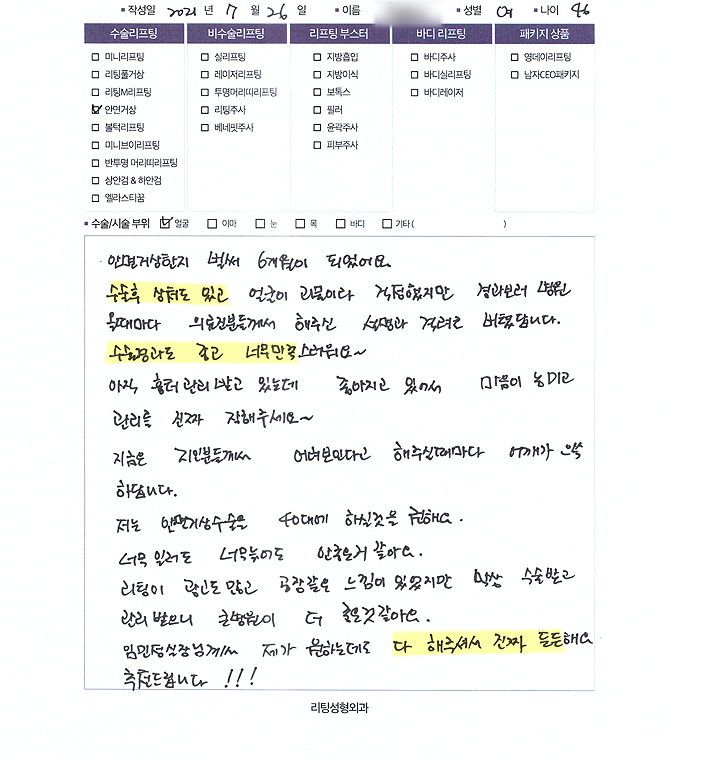 작성일 2021 년 7 월 26 일 이름 성별 여 나이 46
수술리프팅 비수술리프팅 리프팅 부스터 바디 리프팅 패키지 상품
미니리프팅 실리프팅 지방흡입 바디주사 영데이리프팅
리팅풀거상 레이저리프팅 지방이식 바디실리프팅 남자CEO패키지
리팅M리프팅 투명머리띠리프팅 보톡스 바디레이저
안면거상 리팅주사 필러
볼턱리프팅 베네핏주사 윤곽주사
미니브이리프팅 피부주사
반투명 머리띠리프팅
상안검 & 하안검
엘라스티꿈
수술/시술 부위 얼굴 이마 눈 목 바디 기타( )
안면거상한지 벌써 6개월이 되었어요
수술후 상처도 있고 얼굴이 괴물이라 걱정했지만 경과보러 병원
올때마다 의료진분들께서 해주신 설명과 격려로 버텼답니다.
수술결과도 좋고 너무만족스러워요~
아직 흉터관리받고 있는데 좋아지고 있어서 마음이 놓이고
관리를 진짜 잘해주세요~
지금은 지인분들께서 어려보인다고 해주실때마다 어깨가 으쓱
하답니다.
저는 안면거상수술을 40대에 하실것을 권해요.
너무 일러도 너무늦어도 안좋은거 같아요.
리팅이 광고도 많고 공장같은 느낌이 있었지만 막상 수술받고
관리 받으니 큰병원이 더 좋은것같아요.
임민정실장님께서 제가 원하는데로 다 해주셔서 진짜 든든해요
추천드립니다 !!!
리팅성형외과